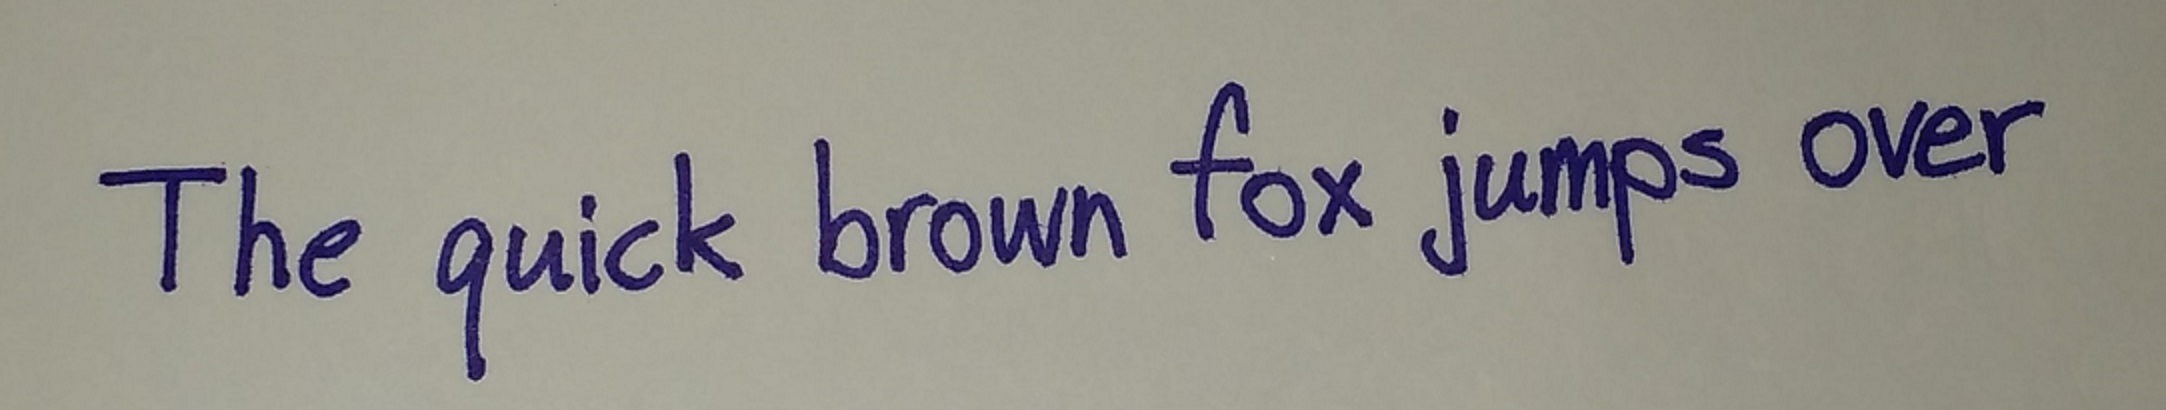 The quick brown fox jumps over